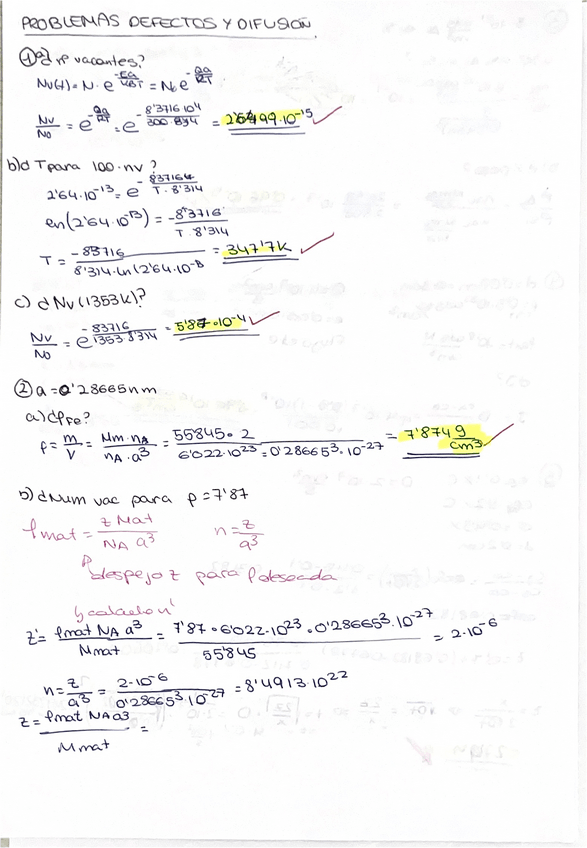 PROBLEMAS DEFECTOS Y DIFUSIÓN
① a) ¿ nº vacantes?
Nv(t) = N · e^-Ea/KBT = N₀ e^-Qa/RT
Nv/N₀ = e^-Qa/RT = e^-8'3716·10⁴/300·8'314 = 2'6499·10⁻¹⁵
b) ¿ T para 100·nv?
2'64·10⁻¹³ = e^-83716/T·8'314
ln(2'64·10⁻¹³) = -83716/T·8'314
T = -83716/8'314·ln(2'64·10⁻¹³ = 347'7K
c) ¿ Nv (1353K)?
Nv/N₀ = e^-83716/1353·8'314 = 5'87·10⁻⁴
② a = 0'28665nm
a) ¿ρFe?
ρ = m/V = Mm·nA/nA·a³ = 55845·2/6'022·10²³·0'28665³·10⁻²⁷ = 7'874 g/cm³
b) ¿Num vac para ρ = 7'87
ρmat = z Mat/NA a³ n = z/a³
despejo z para ρ deseada
y calculo n'
z' = ρmat NA a³/Mmat = 7'87·6'022·10²³·0'28665³·10⁻²⁷/55'845 = 2·10⁻⁶
n = z/a³ = 2·10⁻⁶/0'28665³·10⁻²⁷ = 8'4913·10²²
z = ρmat NA a³/Mmat =